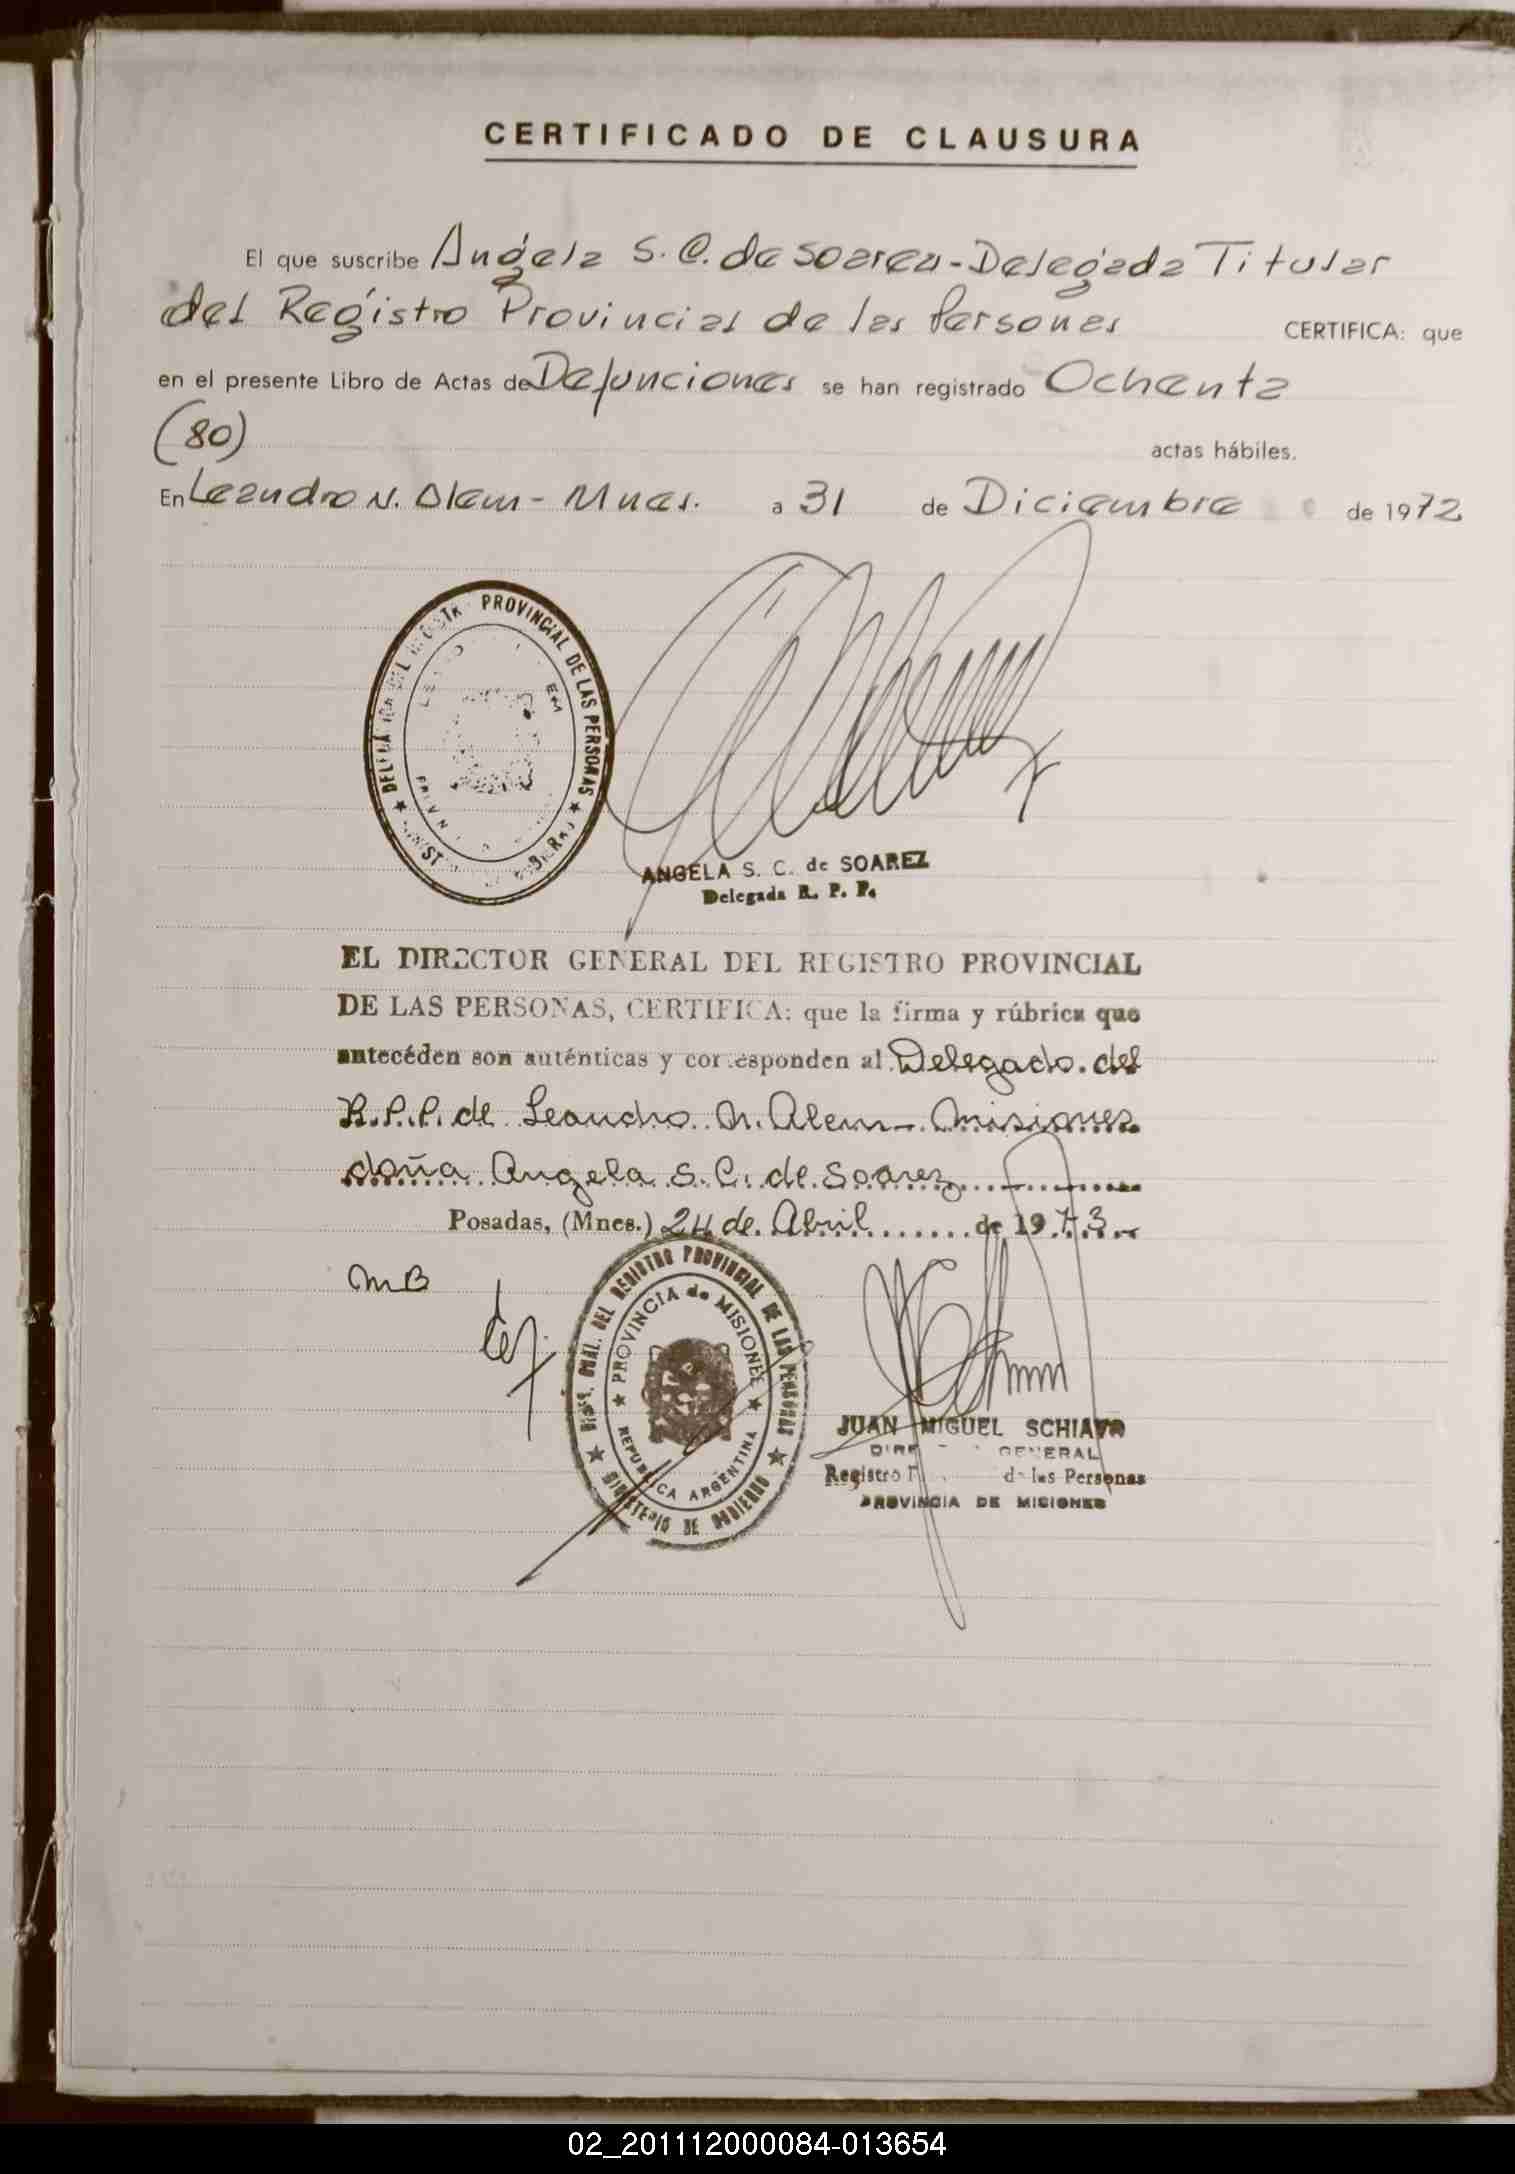 CERTIFICADO DE CLAUSURA
El que suscribe Angela S. C. de Soarez - Delegada Titular
del Registro Provincial de las Personas CERTIFICA: que
en el presente Libro de Actas de Defunciones se han registrado Ochenta
(80) actas hábiles.
En Leandro N. Alem - Mnes. a 31 de Diciembre de 1972
PROVINCIAL DE LAS PERSONAS
ANGELA S. C. de SOAREZ
Delegada R. P. P.
EL DIRECTOR GENERAL DEL REGISTRO PROVINCIAL
DE LAS PERSONAS, CERTIFICA: que la firma y rúbrica que
antecéden son auténticas y corresponden al Delegado del
R.P.P. de Leandro N. Alem - Misiones
doña Angela S. C. de Soarez
Posadas, (Mnes.) 24 de Abril de 1973
MB
DEL REGISTRO PROVINCIAL DE LAS PERSONAS
PROVINCIA de MISIONES
REPUBLICA ARGENTINA
MINISTERIO DE GOBIERNO
JUAN MIGUEL SCHIAVO
GENERAL
Registro de las Personas
PROVINCIA DE MISIONES
02_201112000084-013654